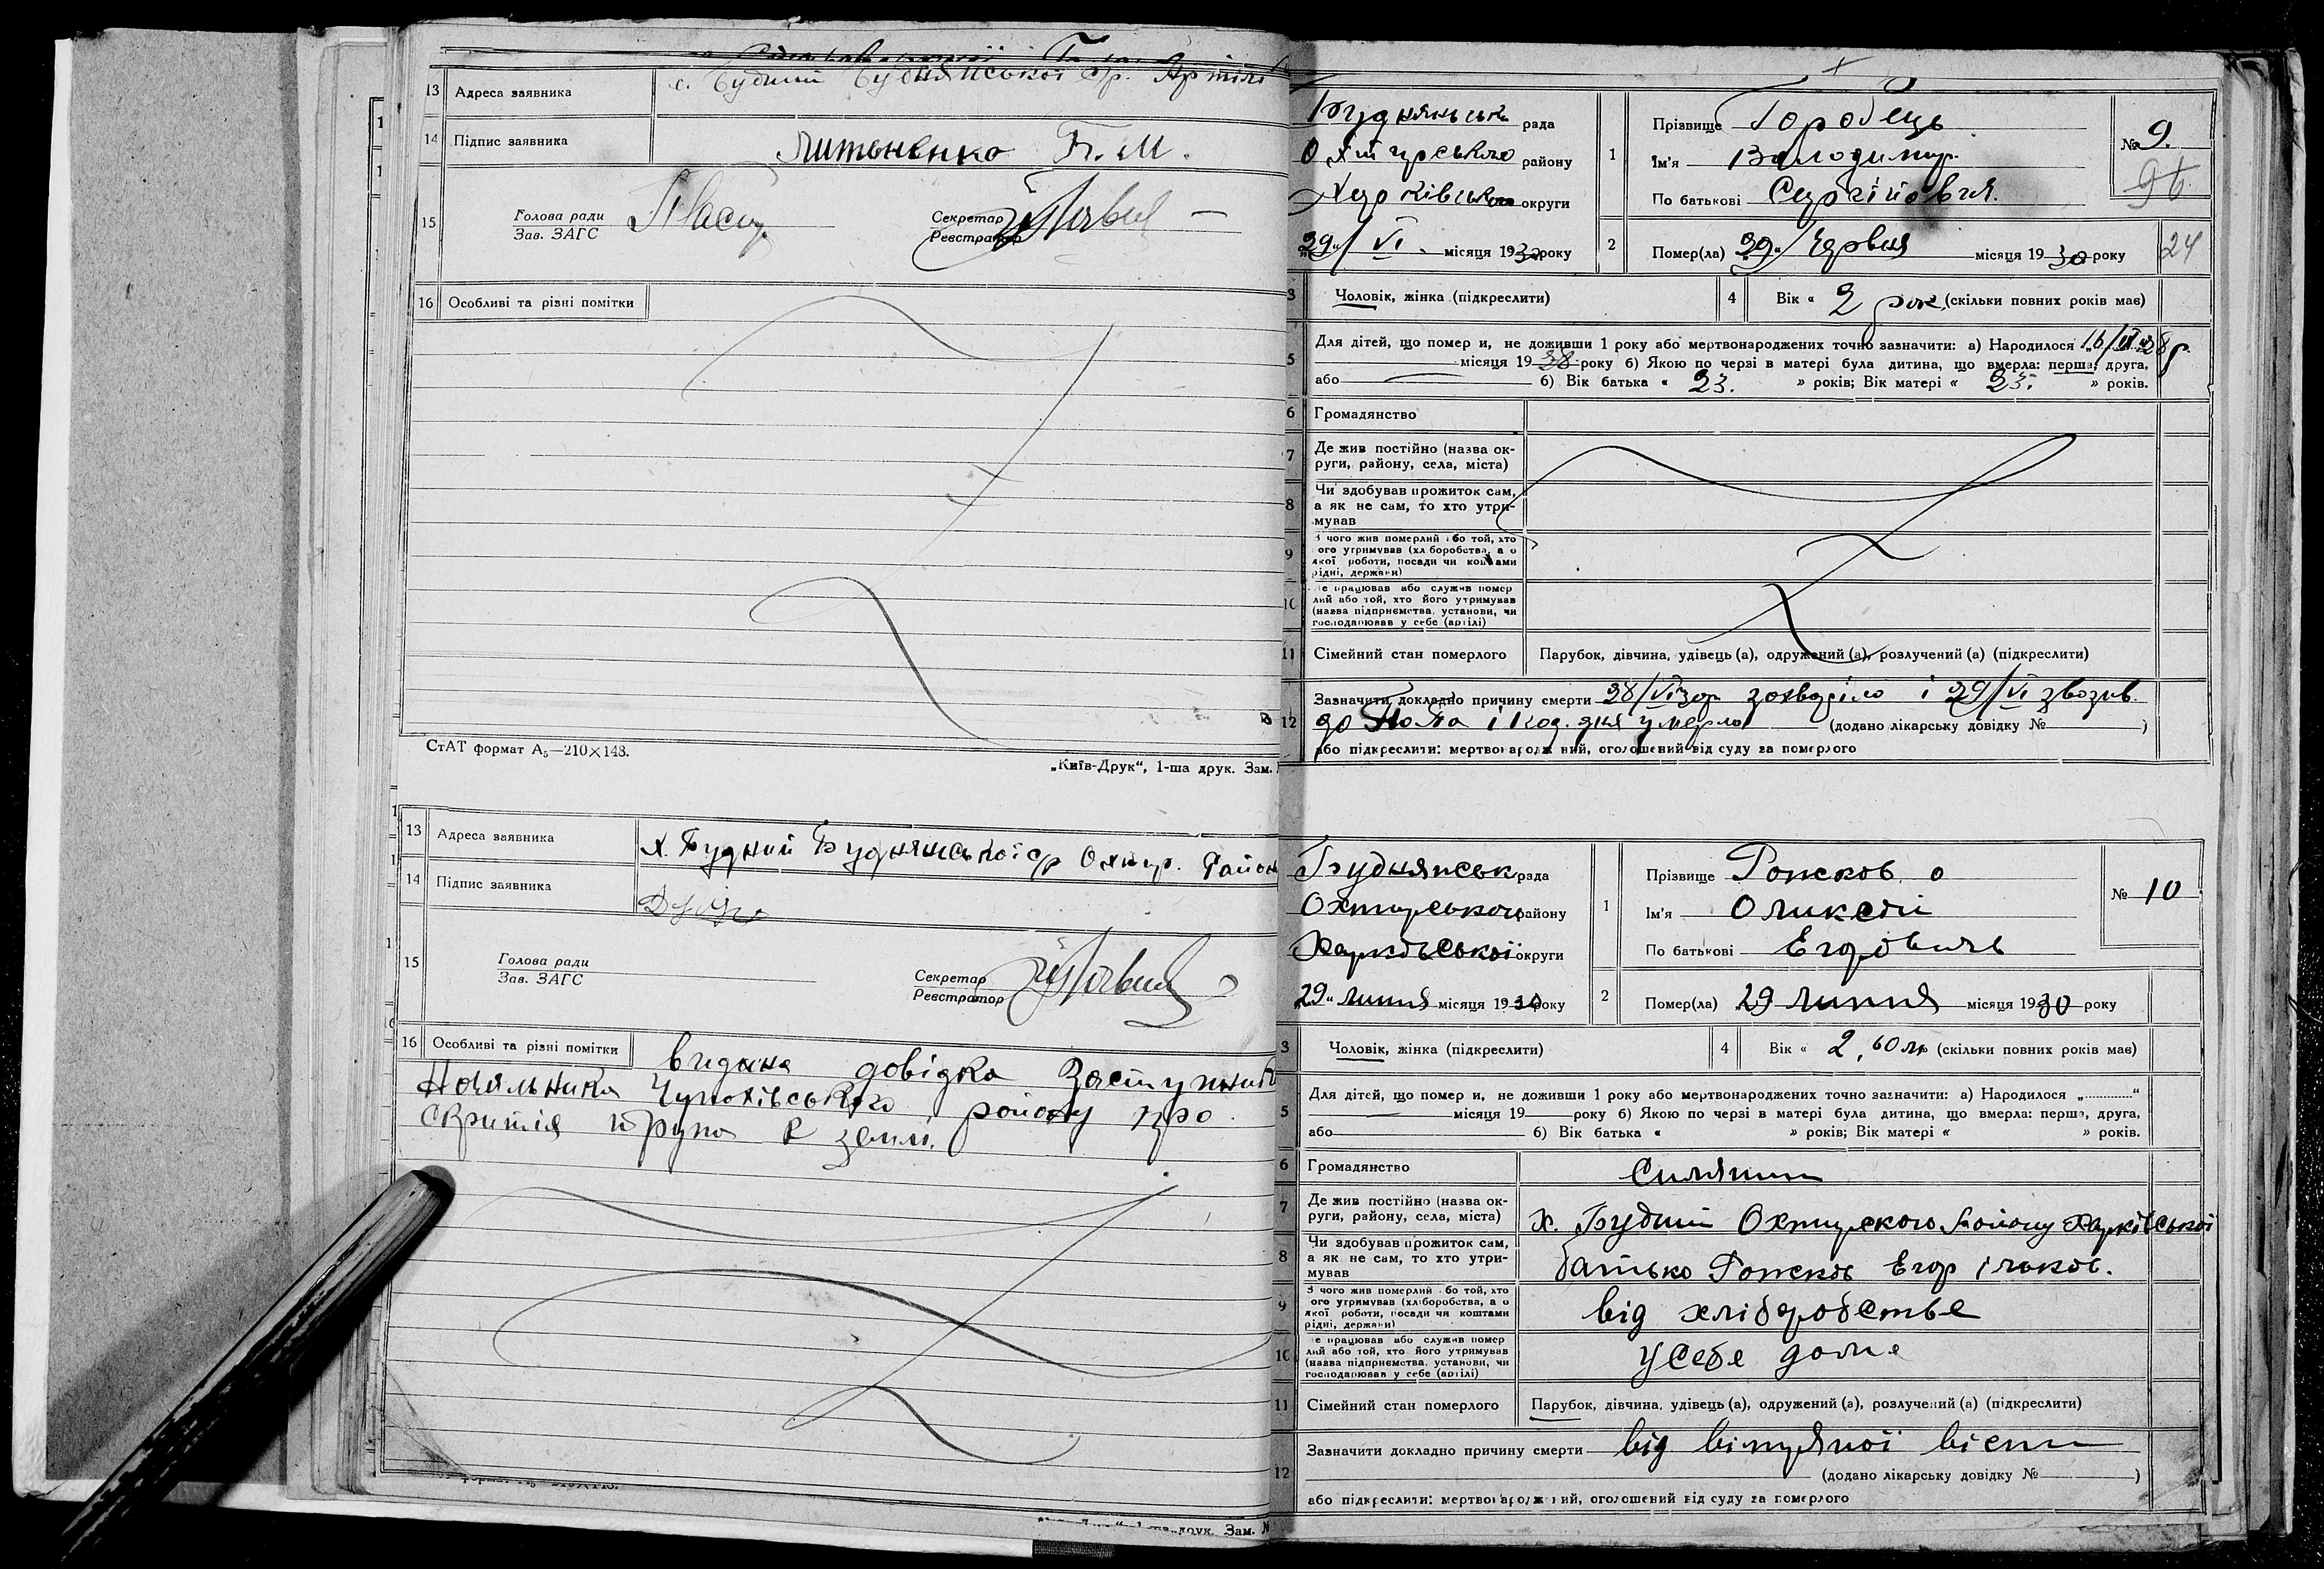 13 Адреса заявника с. Будний Буднянської с/р. Артіль
14 Підпис заявника Литвененко Т. М.
15 Голова ради
Зав. ЗАГС
Секретар
Реєстратор
16 Особливі та різні помітки
СтАТ формат А5—210×148.
„Київ-Друк“, 1-ша друк. Зам.
13 Адреса заявника х. Будний Буднянської с/р Охтир. Район
14 Підпис заявника
15 Голова ради
Зав. ЗАГС
Секретар
Реєстратор
16 Особливі та різні помітки видана довідка Заступник
Начальника Чупахівського району про
скритія трупа в землі.
друк. Зам. №
Буднянська рада
Охтирського району
Харківської округи
29/VI місяця 1930 року
1 Прізвище Горобець
Ім'я Володимир
По батькові Сергійович
№ 9.
96
2 Помер(ла) „29“ Червня місяця 1930 року
24
3 Чоловік, жінка (підкреслити)
4 Вік « 2 рок. (скільки повних років має)
5 Для дітей, що помер и, не доживши 1 року або мертвонароджених точно зазначити: а) Народилося „16/VI 28 р.
місяця 1928 року б) Якою по черзі в матері була дитина, що вмерла: перша, друга,
або б) Вік батька « 23. » років; Вік матері « 23. » років.
6 Громадянство
7 Де жив постійно (назва ок-
руги, району, села, міста)
8 Чи здобував прожиток сам,
а як не сам, то хто утри-
мував
9 З чого жив померлий або той, хто
ого утримував (хліборобства, а о
якої роботи, посади чи коштами
рідні, держави)
10 е працював або служив помер
лий або той, хто його утримував
(назва підприємства, установи, чи
господарював у себе (артілі)
11 Сімейний стан померлого Парубок, дівчина, удівець (а), одружений (а), розлучений (а) (підкреслити)
12 Зазначити докладно причину смерти 28/VI 30р захворіло і 29/VI
умерло (додано лікарську довідку № )
або підкреслити: мертвонароджений, оголошений від суду за померлого
Буднянськ рада
Охтирського району
Харківської округи
„29“ липня місяця 1930 року
1 Прізвище Рожков
Ім'я Олексій
По батькові Егорович
№ 10
2 Помер(ла) „29 липня місяця 1930 року
3 Чоловік, жінка (підкреслити)
4 Вік « 2, (скільки повних років має)
5 Для дітей, що помер и, не доживши 1 року або мертвонароджених точно зазначити: а) Народилося „ “
місяця 19 року б) Якою по черзі в матері була дитина, що вмерла: перша, друга,
або б) Вік батька « » років; Вік матері « » років.
6 Громадянство Силянин
7 Де жив постійно (назва ок-
руги, району, села, міста) х. Будний Охтирского Району Харківської
8 Чи здобував прожиток сам,
а як не сам, то хто утри-
мував батько Рожков Егор
9 З чого жив померлий або той, хто
ого утримував (хліборобства, а о
якої роботи, посади чи коштами
рідні, держави) від хліборобства
10 е працював або служив помер
лий або той, хто його утримував
(назва підприємства, установи, чи
господарював у себе (артілі) у себе дома
11 Сімейний стан померлого Парубок, дівчина, удівець (а), одружений (а), розлучений (а) (підкреслити)
12 Зазначити докладно причину смерти від вітряної віспи
(додано лікарську довідку № )
або підкреслити: мертвонароджений, оголошений від суду за померлого